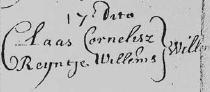 17 dito
Claas Cornelisz
Reyntje Willems } Wille